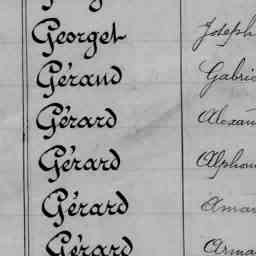 Georget Joseph
Géraud Gabrie
Gérard Alexan
Gérard Alphon
Gérard Aman
Gérard Arma